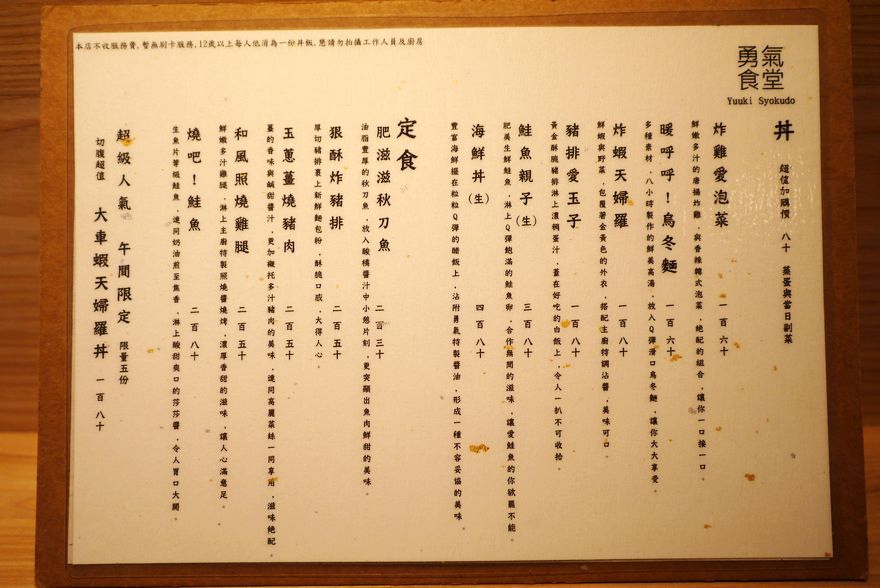 本店不收服務費，暫無刷卡服務，12歲以上每人低消為一份丼飯，懇請勿拍攝工作人員及廚房
勇氣食堂
Yuuki Syokudo
丼 超值加購價 八十 蒸蛋與當日副菜
炸雞愛泡菜 一百六十
鮮嫩多汁的唐揚炸雞，與香辣韓式泡菜，絕配的組合，讓你一口接一口。
暖呼呼！烏冬麵 一百六十
多種素材，八小時製作的鮮美高湯，放入Q彈滑口烏冬麵，讓你大大享受。
炸蝦天婦羅 一百八十
鮮蝦與野菜，包覆著金黃色的外衣，搭配主廚特調沾醬，美味可口。
豬排愛玉子 一百八十
黃金酥脆豬排淋上濃稠蛋汁，蓋在好吃的白飯上，令人一扒不可收拾。
鮭魚親子(生) 三百八十
肥美生鮮鮭魚，淋上Q彈飽滿的鮭魚卵，合作無間的滋味，讓愛鮭魚的你欲罷不能。
海鮮丼(生) 四百八十
豐富海鮮擺在粒粒Q彈的醋飯上，沾附勇氣特製醬油，形成一種不容妥協的美味。
定食
肥滋滋秋刀魚 二百三十
油脂豐厚的秋刀魚，放入酸橘醬汁中小憩片刻，更突顯出魚肉鮮甜的美味。
狠酥炸豬排 二百五十
厚切豬排裹上新鮮麵包粉，酥脆口感，大得人心。
玉蔥薑燒豬肉 二百五十
薑的香味與鹹甜醬汁，更加襯托多汁豬肉的美味，連同高麗菜絲一同享用，滋味絕配。
和風照燒雞腿 二百五十
鮮嫩多汁雞腿，淋上主廚特製照燒醬燒烤，濃厚香甜的滋味，讓人心滿意足。
燒吧！鮭魚 二百八十
生魚片等級鮭魚，連同奶油煎至焦香，淋上酸甜爽口的莎莎醬，令人胃口大開。
超級人氣 午間限定 限量五份
切腹超值 大車蝦天婦羅丼 一百八十